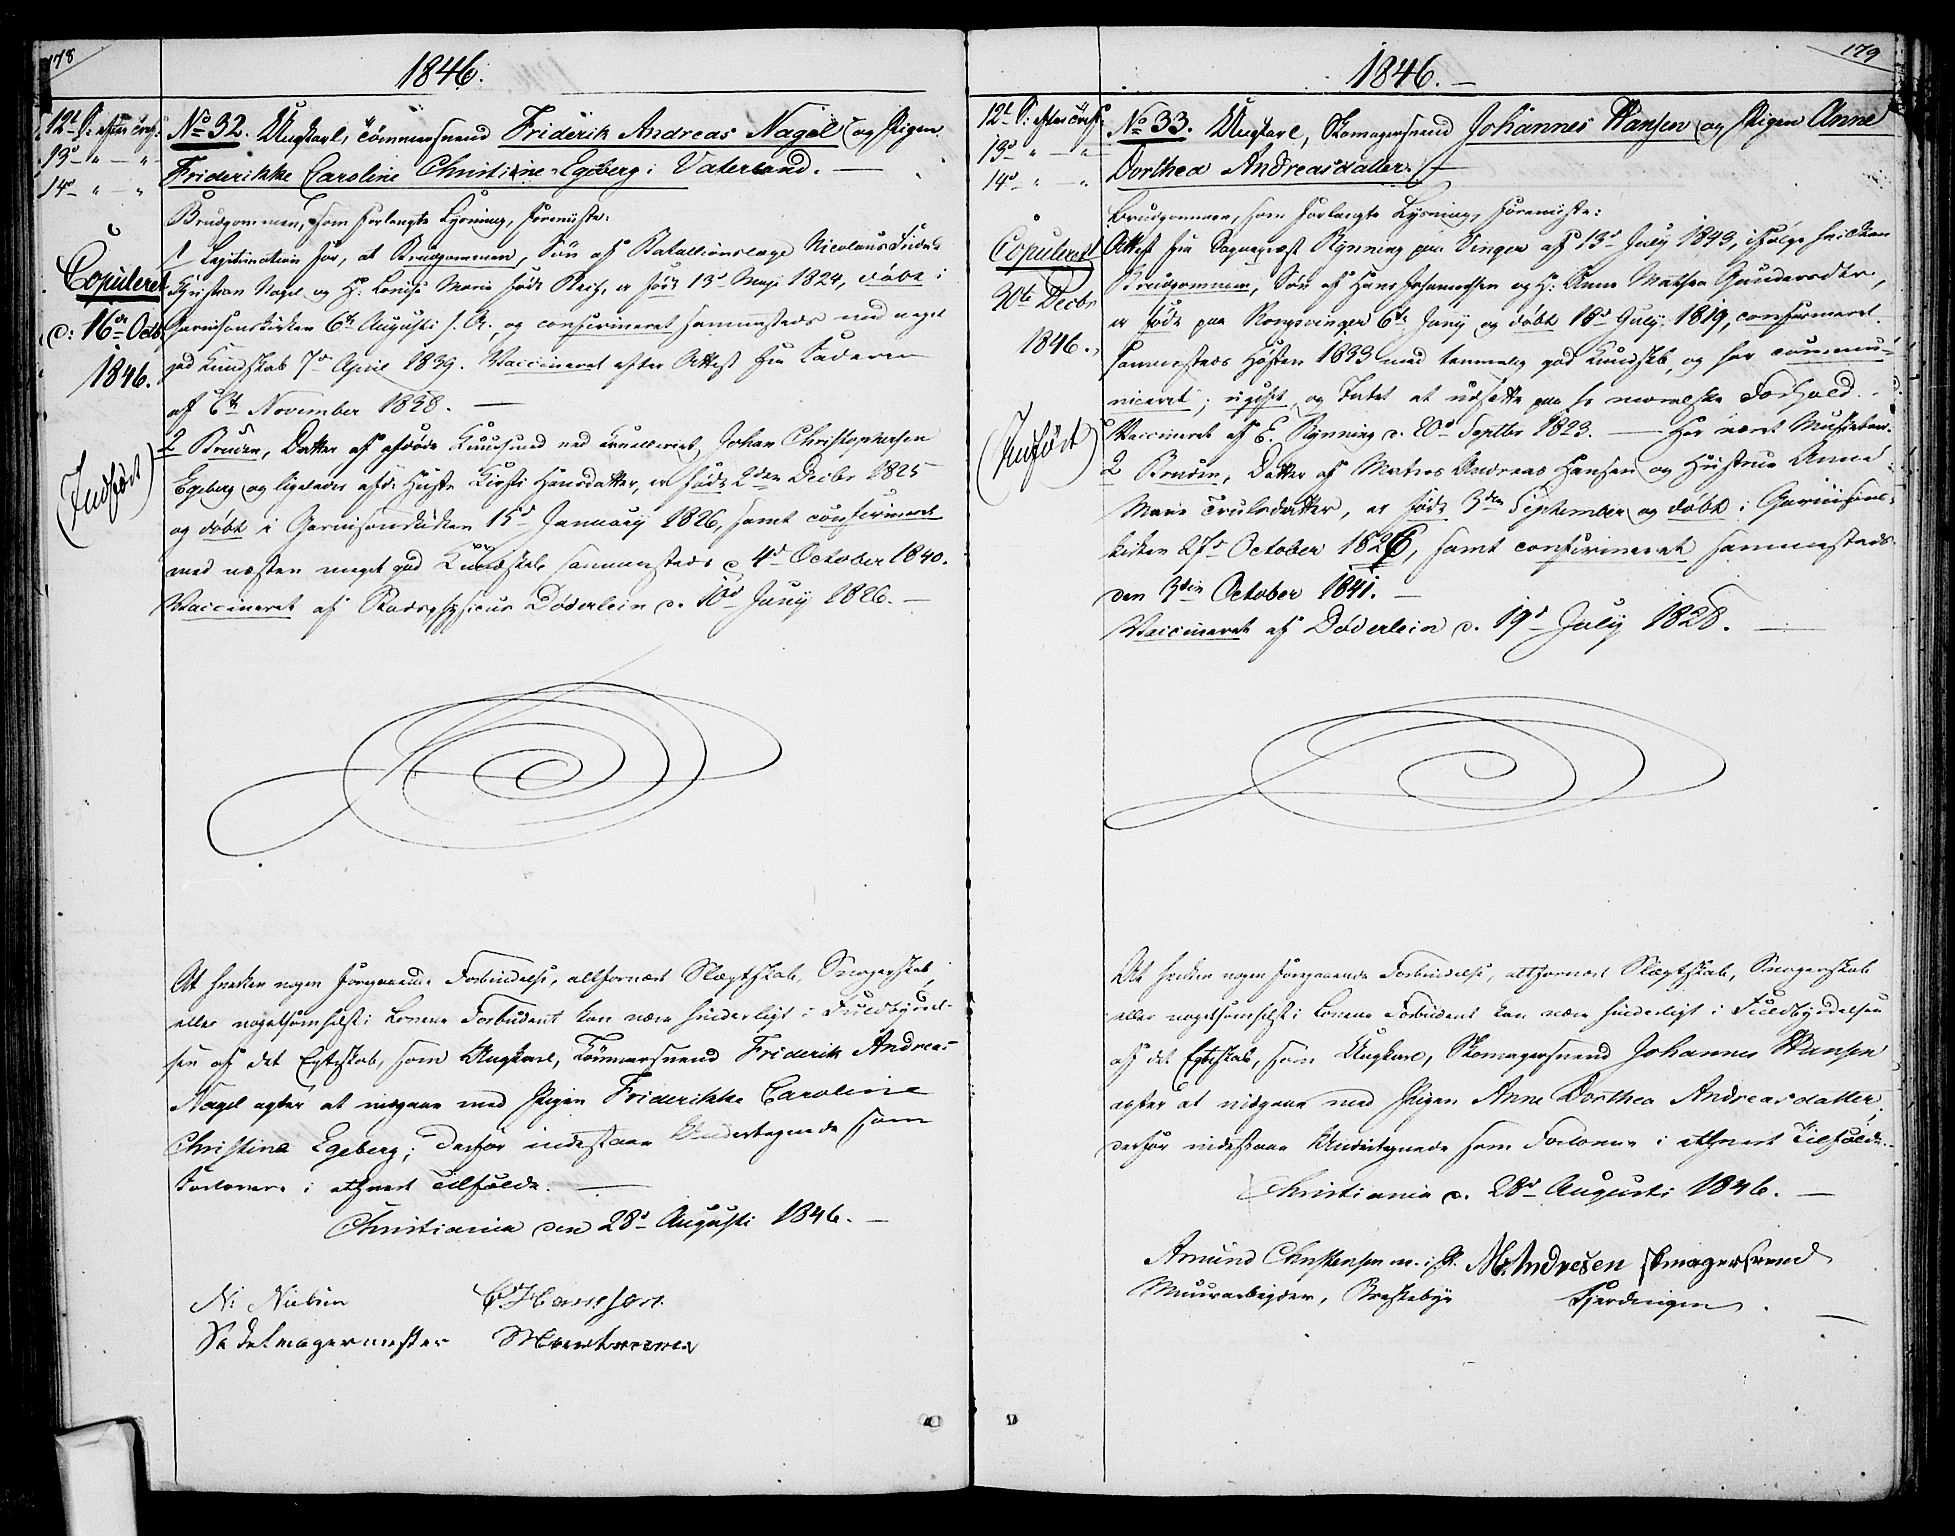 178
1846.
12t S: efter Tref:
13d " — "
14d " — "
No 32. Ungkarl, Tömmersvend Friderik Andreas Nagel og Pigen
Friderikke Caroline Christine Egeberg i Vaterland. —
Copuleret
d: 16de Octb
1846.
(Indført)
Brudgommen, som forlangte Lysning, foreviiste:
1 Legitimation for, at Brudgommen, Søn af Bataillonslæge Nicolaus
Christian Nagel og H: Lovise Marie født, er født 13d Maji 1824, døbt i
Garnisonskirken 6te Augusti s. A., og confirmeret sammesteds med meget
god Kundskab 7de April 1839. Vaccineret efter Attest fra Faderen
af 6te November 1838. —
2 Bruden, Datter af afdøde ved Johan Christophersen
Egeberg og ligeledes afd: Hustr: Kirsti Hansdatter, er født 2den Decbr 1825
og døbt i Garnisonskirken 15d Januarij 1826, samt confirmeret
med næsten meget god Kundskab sammesteds d. 4d October 1840.
Vaccineret af Stadsphysicus Døderlein d. 10d Junij 1826. —
At hverken nogen foregaaende Forbindelse, altfornært Slægtskab, Svogerskab
eller nogetsomhelst i Lovene Forbudent kan være hinderligt i Fuldbyrdel-
sen af det Egteskab, som Ungkarl, Tömmersvend Friderik Andreas
Nagel agter at indgaae med Pigen Friderikke Caroline
Christine Egeberg; derfor indestaae Undertegnede som
Forlovere i ethvert Tilfælde. —
Christiania den 28d Augusti 1846. —
N: Nielsen
Sadelmagermester
179
1846. —
12t S: efter Tref:
13d " — "
14d " — "
No 33. Ungkarl, Skomagersvend Johannes Hansen og Pigen Anne
Dorthea Andreasdatter. —
Copuleret
30te Decbr
1846.
(Indført)
Brudgommen, som forlangte Lysning, foreviiste:
Attest fra Sognepræst Rynning paa Vinger af 13d July 1843, ifølge hvilken
Brudgommen, Søn af Hans Johannesen og H: Anne Mathea Gundersdtr,
er født paa Kongsvinger 6te Junij og døbt 18d July 1819, confirmeret
sammesteds Høsten 1833 med temmelig god Kundskab, og har commu-
niceret; ugift, og Intet at udsætte paa hs moralske Forhold.
Vaccineret af E. Rynning d. 20d Septbr 1823. — Har været
2 Bruden, Datter af Matros Andreas Hansen og Hustrue Anne
Marie Trulsdatter, er født 3den September og døbt i Garnisons-
kirken 27d October 1826, samt confirmeret sammesteds
den 3die October 1841. —
Vaccineret af Døderlein d. 19d July 1828. —
At hverken nogen foregaaende Forbindelse, altfornært Slægtskab, Svogerskab
eller nogetsomhelst i Lovene Forbudent kan være hinderligt i Fuldbyrdelsen
af det Egteskab, som Ungkarl, Skomagersvend Johannes Hansen
agter at indgaae med Pigen Anne Dorthea Andreasdatter,
derfor indestaae Undertegnede som Forlovere i ethvert Tilfælde. —
Christiania d. 28d Augusti 1846. —
Amund Christensen m. i P. M. Andresen skomagersvend
Muurarbeyder, Fjerdingen. —